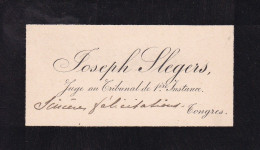 Joseph Slegers,
Juge au Tribunal de 1re Instance.
Sincères félicitations. Tongres.